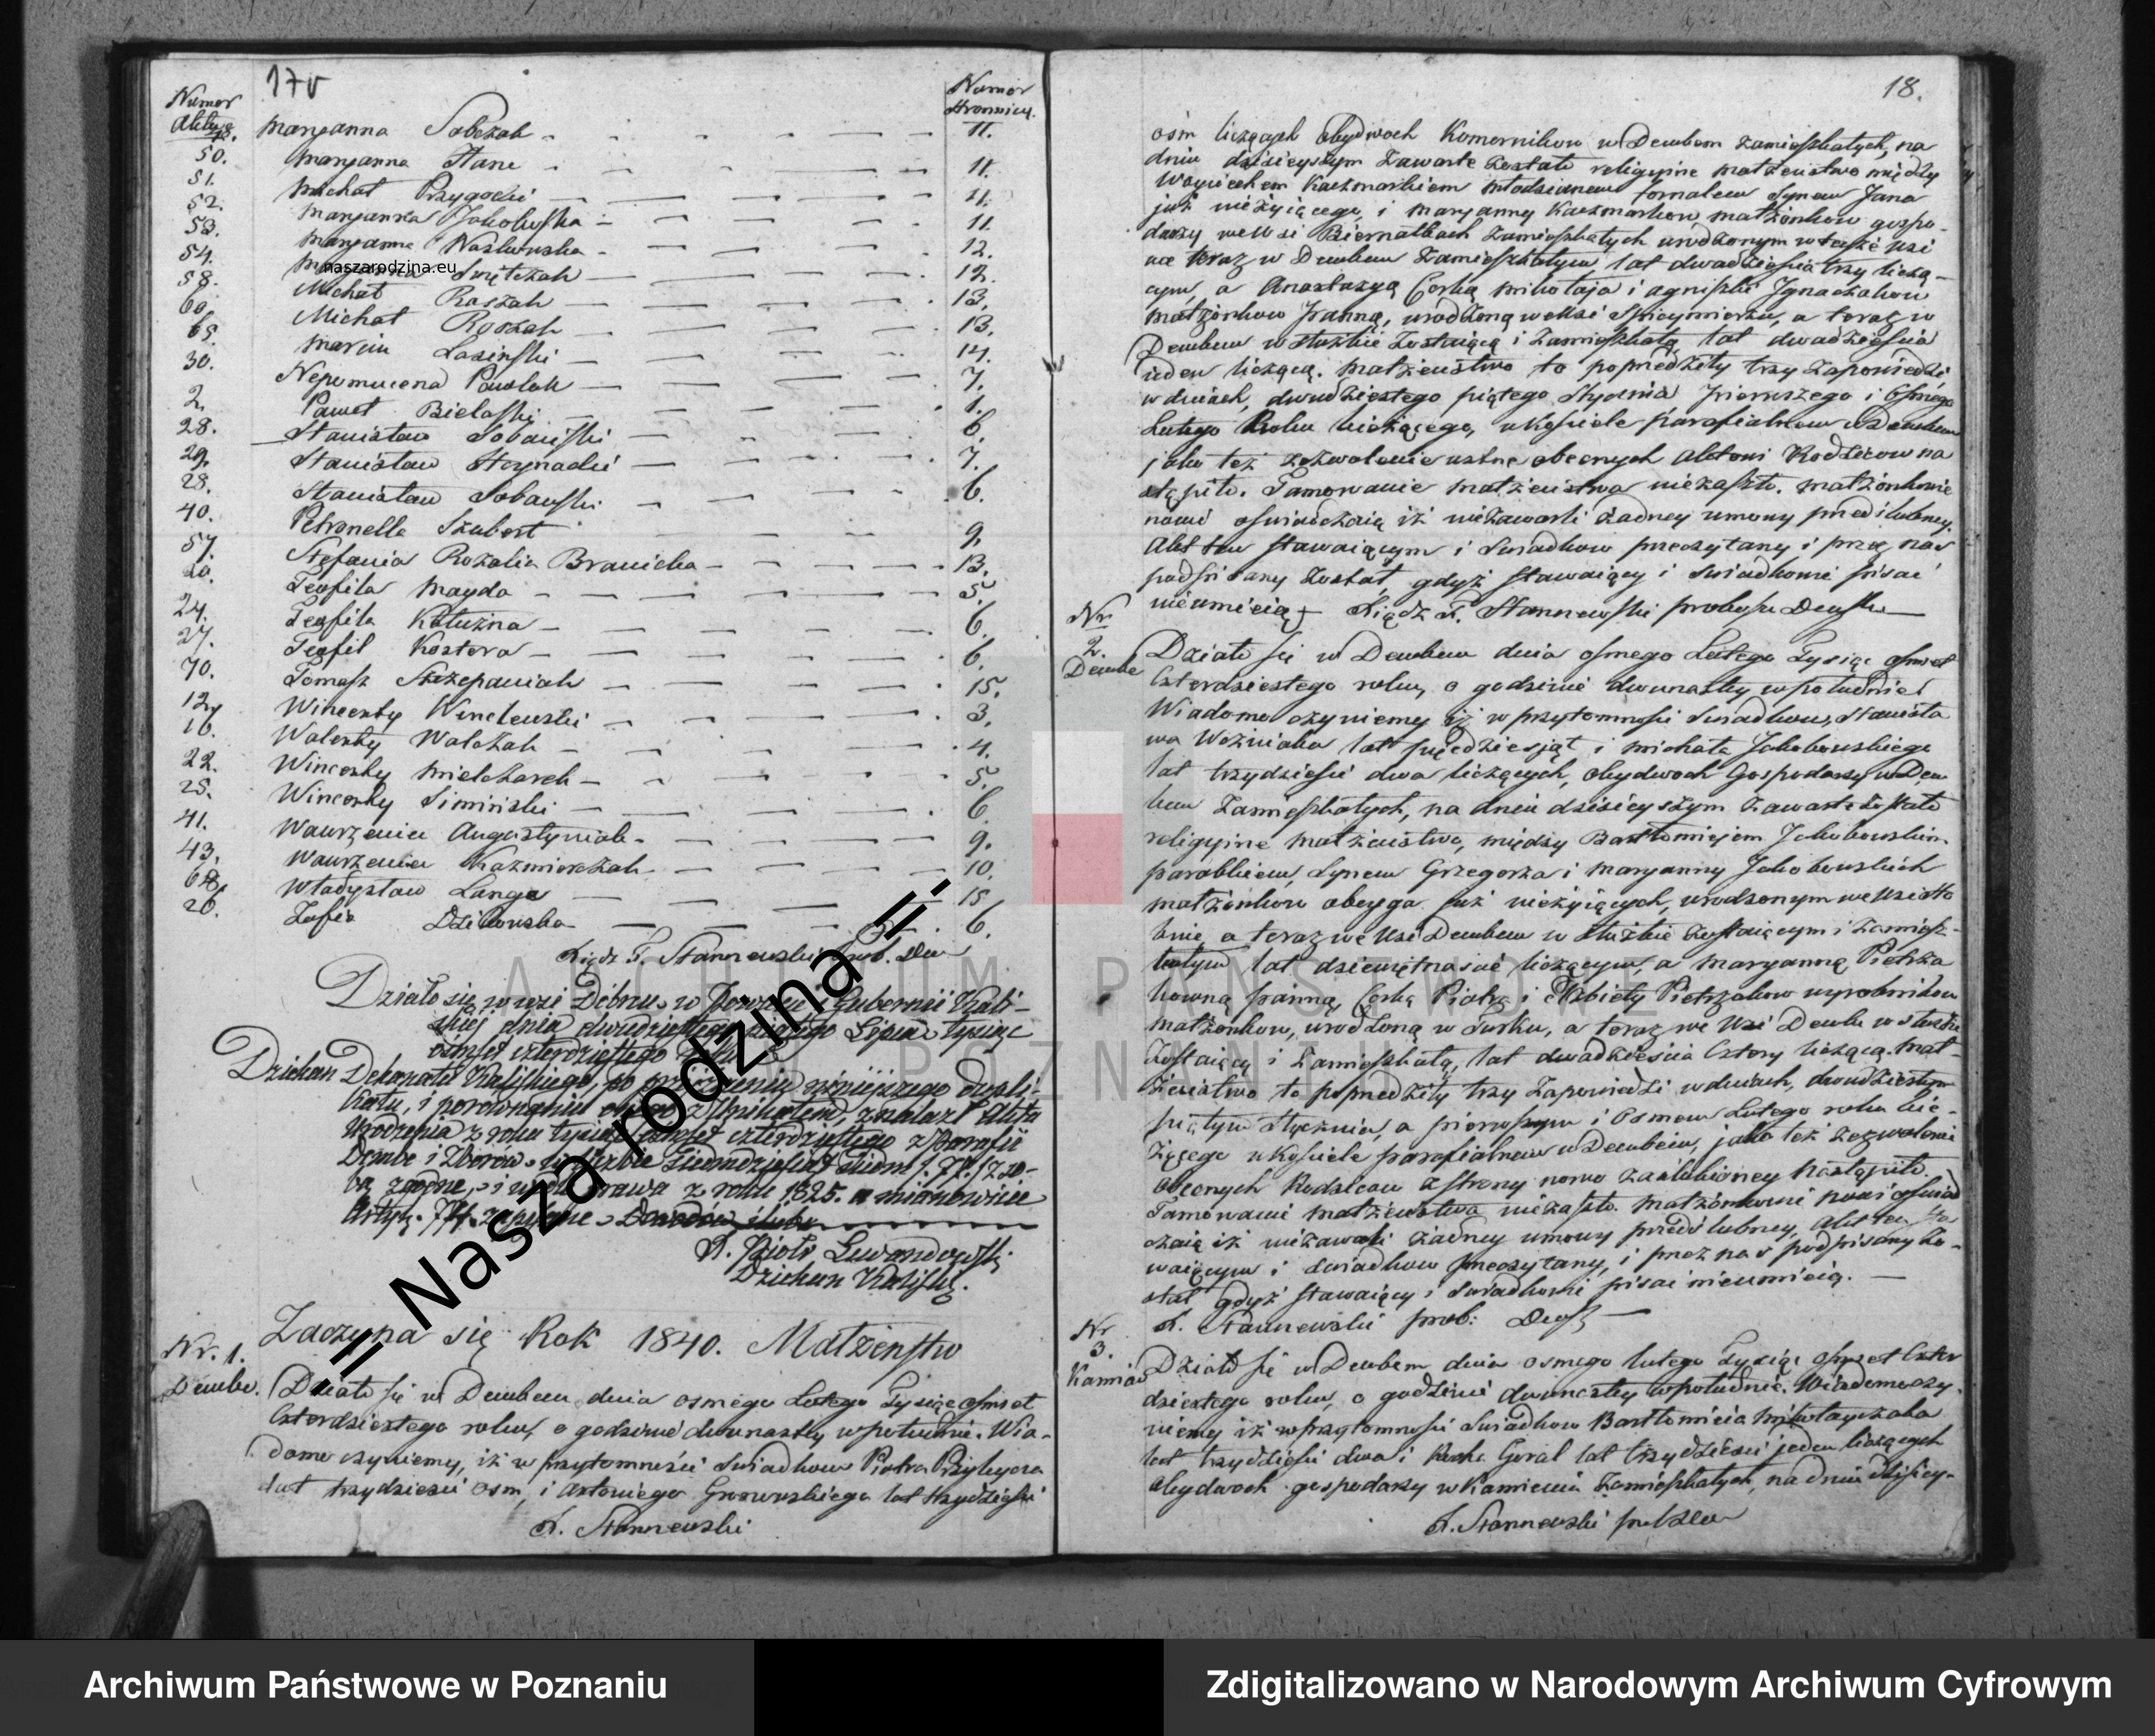 17v
Numer Aktu
Numer Stronnicy.
48. Maryanna Sobczak 11.
50. Maryanna Stane 11.
51. Michał Przygocki 11.
52. Maryanna Jakobuska 11.
53. Maryanna Waszkowska 12.
54. Maryanna Swiętczak 12.
58. Michał Raszak 13.
60. Michał Roszak 13.
65. Marcin Lasinski 14.
30. Nepomucena Pawlak 7.
2. Paweł Bielaski 1.
28. Stanisław Sobański 6.
29. Stanisław Strynadki 7.
28. Stanisław Sobański 6.
40. Petronella Szubert 9.
57. Stefania Rozalia Branicka 13.
20. Teofila Magda 5.
24. Teofila Kałużna 6.
27. Teofil Kostera 6.
70. Tomasz Szczepaniak 15.
12. Wincenty Wenclewski 3.
16. Walenty Walczak 4.
22. Wincenty Mielcharek 5.
25. Wincenty Simiński 6.
41. Wawrzeniec Augustyniak 9.
43. Wawrzeniec Kazmierczak 10.
68. Władysław Langa 15
26. Zofia Dzikowska 6.
Xiądz F. Stannewski prob. Dem
Działo się w wsi Dębnu w Powiecie Gubernii Kali-
skiej dnia dwudziestego piątego Lipca tysiąc
ośmset czterdziestego Roku
Dziekan Dekanatu Kaliskiego, po przejrzeniu niniejszego dupli-
katu, i porównaniu onego z Unikatem, znalazł Akta
Urodzenia z roku tysiąc ośmset czterdziestego z Parafii
Dembe i Zborow w liczbie Siedmdziesiąt siedm
są zgodne, i wedle prawa z roku 1825. a mianowicie
X. Piotr Lewandowski
Dziekan Kaliski.
Zaczyna się Rok 1840. Małżeństw
Nr. 1.
Dembe.
Działo się w Dembem dnia osmego Lutego Tysiąc ośmset
Czterdziestego roku, o godzinie dwunastey w południe. Wia-
domo czyniemy, iż w przytomności Swiadkow Piotra Przybycza
lat trzydzieści osm, i Antoniego Grosewskiego lat trzydzieści
X. Stannewski
18.
ośm liczących obydwoch Komornikow w Dembem zamieszkałych, na
dniu dzisieyszym zawarte zostało religijne małżeństwo między
Woyciechem Kaczmarkiem młodzianem fornalem Synem Jana
już nieżyiącego, i Maryanny Kaczmarkow małżonkow gospo-
darzy we Wsi Biernatkach zamieszkałych urodzonym w teyże Wsi
na teraz w Dembem zamieszkałym lat dwadzieścia trzy liczą-
cym, a Anastazyą Corką Mikołaja i Agniszki Ignaczakow
małżonkow Panną, urodzoną we Wsi Spicymierzu, a teraz w
Dembem w służbie zostaiącą i zamieszkałą lat dwadzieścia
ieden liczącą. Małżeństwo to poprzedziły trzy zapowiedzi
w dniach, dwudziestego piątego Stycznia pierwszego i Osmego
Lutego Roku bieżącego, w Kościele parafialnem w Dembem
jako też zezwolenie ustne obecnych Aktowi Rodzicow na
stąpiło. Tamowanie małżeństwa niezaszło. Małżonkowie
nowi oświadczaią iż niezawarli żadney umowy przedślubney.
Akt ten stawaiącym i Swiadkom przeczytany i przez nas
podpisany został, gdyż stawaiący i Swiadkowie pisać
nieumieią. Xiądz F. Stannewski proboszcz Demski
Nr
2.
Dembe
Działo się w Dembem dnia osmego Lutego Tysiąc ośmset
Czterdziestego roku, o godzinie dwunastey w południe.
Wiadomo czyniemy iż w przytomności Swiadkow, Stanisła
wa Wozniaka lat pięćdziesiąt i Michała Jakobowskiego
lat trzydzieści dwa liczących, obydwoch Gospodarzy w Dem
bem zamieszkałych, na dniu dzisieyszym zawarte zostało
religijne małżeństwo, między Bartłomiejem Jakobowskim
parobkiem, Synem Grzegorza i Maryanny Jakobowskich
małżonkow oboyga już nieżyiących, urodzonym we Wsi
a teraz we Wsi Dembem w służbie zostaiącym i zamiesz-
kałym lat dziewiętnaście liczącym, a Maryanną Pietrza
kowną panną, Corką Piotra i Elżbiety Pietrzakow wyrobnikow
małżonkow, urodzoną w Turku, a teraz we Wsi Dembe w służbie
zostaiący i zamieszkałą, lat dwadzieścia Cztery liczącą. Mał-
żeństwo to poprzedziły trzy zapowiedzi w dniach, dwudziestym
piątym Stycznia, a pierwszym i Osmem Lutego roku bie-
żącego w Kościele parafialnem w Dembem, jako też zezwolenie
obecnych Rodzicow z strony nowo zaślubioney nastąpiło.
Tamowanie małżeństwa niezaszło. Małżonkowie nowi oświad
czaią iż niezawarli żadney umowy przedślubney, Akt ten sta
waiącym i Swiadkom przeczytany, i przez nas podpisany zo-
stał gdyż stawaiący i Swiadkowie pisać nieumieią.
X. Stannewski prob: Dem
Nr
3.
Kamień
Działo się w Dembem dnia osmego lutego Tysiąc ośmset Czter
dziestego roku, o godzinie dwunastey w południe. Wiadomo czy-
niemy iż w przytomności Swiadkow Bartłomieia Mikołayczaka
lat trzydzieści dwa i Rocha Goral lat trzydzieści jeden liczących
Obydwoch gospodarzy w Kamieniu zamieszkałych, na dniu dzisiey-
X. Stannewski prob Dem
naszarodzina.eu
.:: Nasza rodzina ::.
ARCHIWUM PAŃSTWOWE
W POZNANIU
Archiwum Państwowe w Poznaniu
Zdigitalizowano w Narodowym Archiwum Cyfrowym